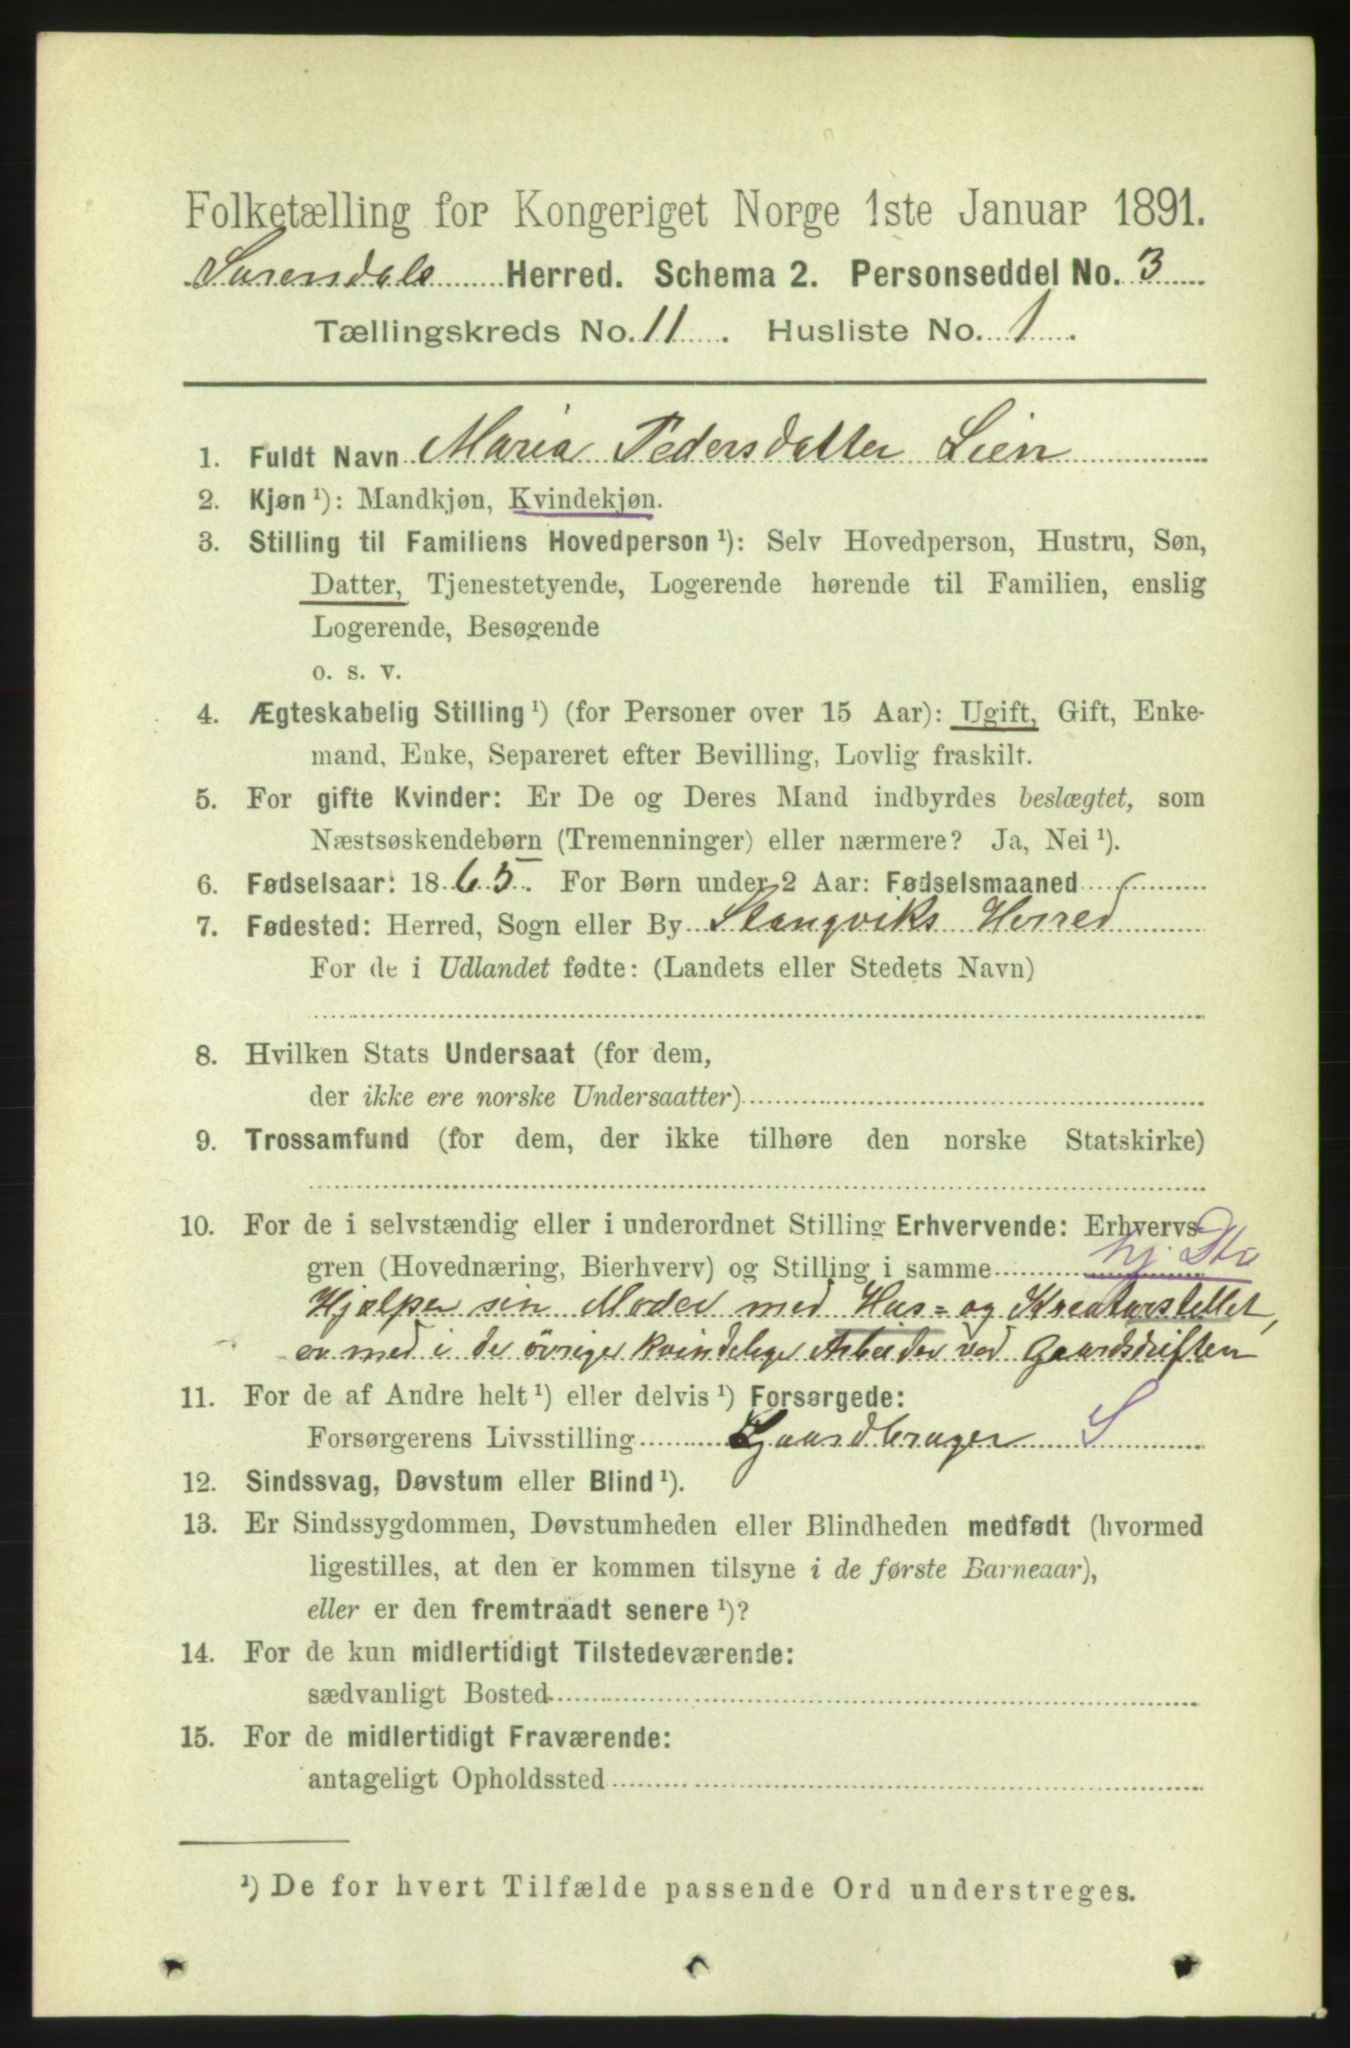 Folketælling for Kongeriget Norge 1ste Januar 1891.
Surendals Herred. Schema 2. Personseddel No. 3
Tællingskreds No. 11. Husliste No. 1.
1. Fuldt Navn Maria Pedersdatter Lien
2. Kjøn ¹): Mandkjøn, Kvindekjøn.
3. Stilling til Familiens Hovedperson ¹): Selv Hovedperson, Hustru, Søn,
Datter, Tjenestetyende, Logerende hørende til Familien, enslig
Logerende, Besøgende
o. s. v.
4. Ægteskabelig Stilling ¹) (for Personer over 15 Aar): Ugift, Gift, Enke-
mand, Enke, Separeret efter Bevilling, Lovlig fraskilt.
5. For gifte Kvinder: Er De og Deres Mand indbyrdes beslægtet, som
Næstsøskendebørn (Tremenninger) eller nærmere? Ja, Nei ¹).
6. Fødselsaar: 1865. For Børn under 2 Aar: Fødselsmaaned
7. Fødested: Herred, Sogn eller By Stangviks Herred
For de i Udlandet fødte: (Landets eller Stedets Navn)
8. Hvilken Stats Undersaat (for dem,
der ikke ere norske Undersaatter)
9. Trossamfund (for dem, der ikke tilhøre den norske Statskirke)
10. For de i selvstændig eller i underordnet Stilling Erhvervende: Erhvervs-
gren (Hovednæring, Bierhverv) og Stilling i samme hj. Sta
Hjælper sin Moder med Hus- og Kreaturstellet,
er med i de øvrige kvindelige Arbeider ved Gaardsdriften
11. For de af Andre helt ¹) eller delvis ¹) Forsørgede:
Forsørgerens Livsstilling Gaardbruger S
12. Sindssvag, Døvstum eller Blind ¹).
13. Er Sindssygdommen, Døvstumheden eller Blindheden medfødt (hvormed
ligestilles, at den er kommen tilsyne i de første Barneaar),
eller er den fremtraadt senere ¹)?
14. For de kun midlertidigt Tilstedeværende:
sædvanligt Bosted
15. For de midlertidigt Fraværende:
antageligt Opholdssted
¹) De for hvert Tilfælde passende Ord understreges.